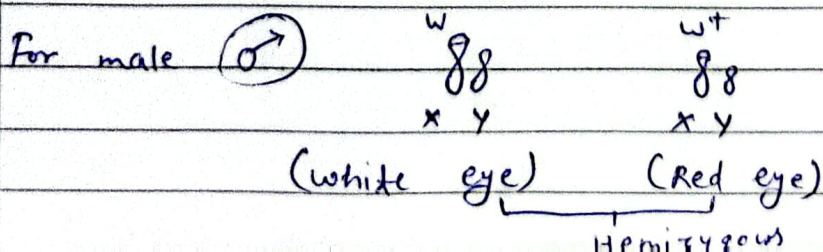 w w+
For male ♂
X Y X Y
(White eye) (Red eye)
Hemizygous